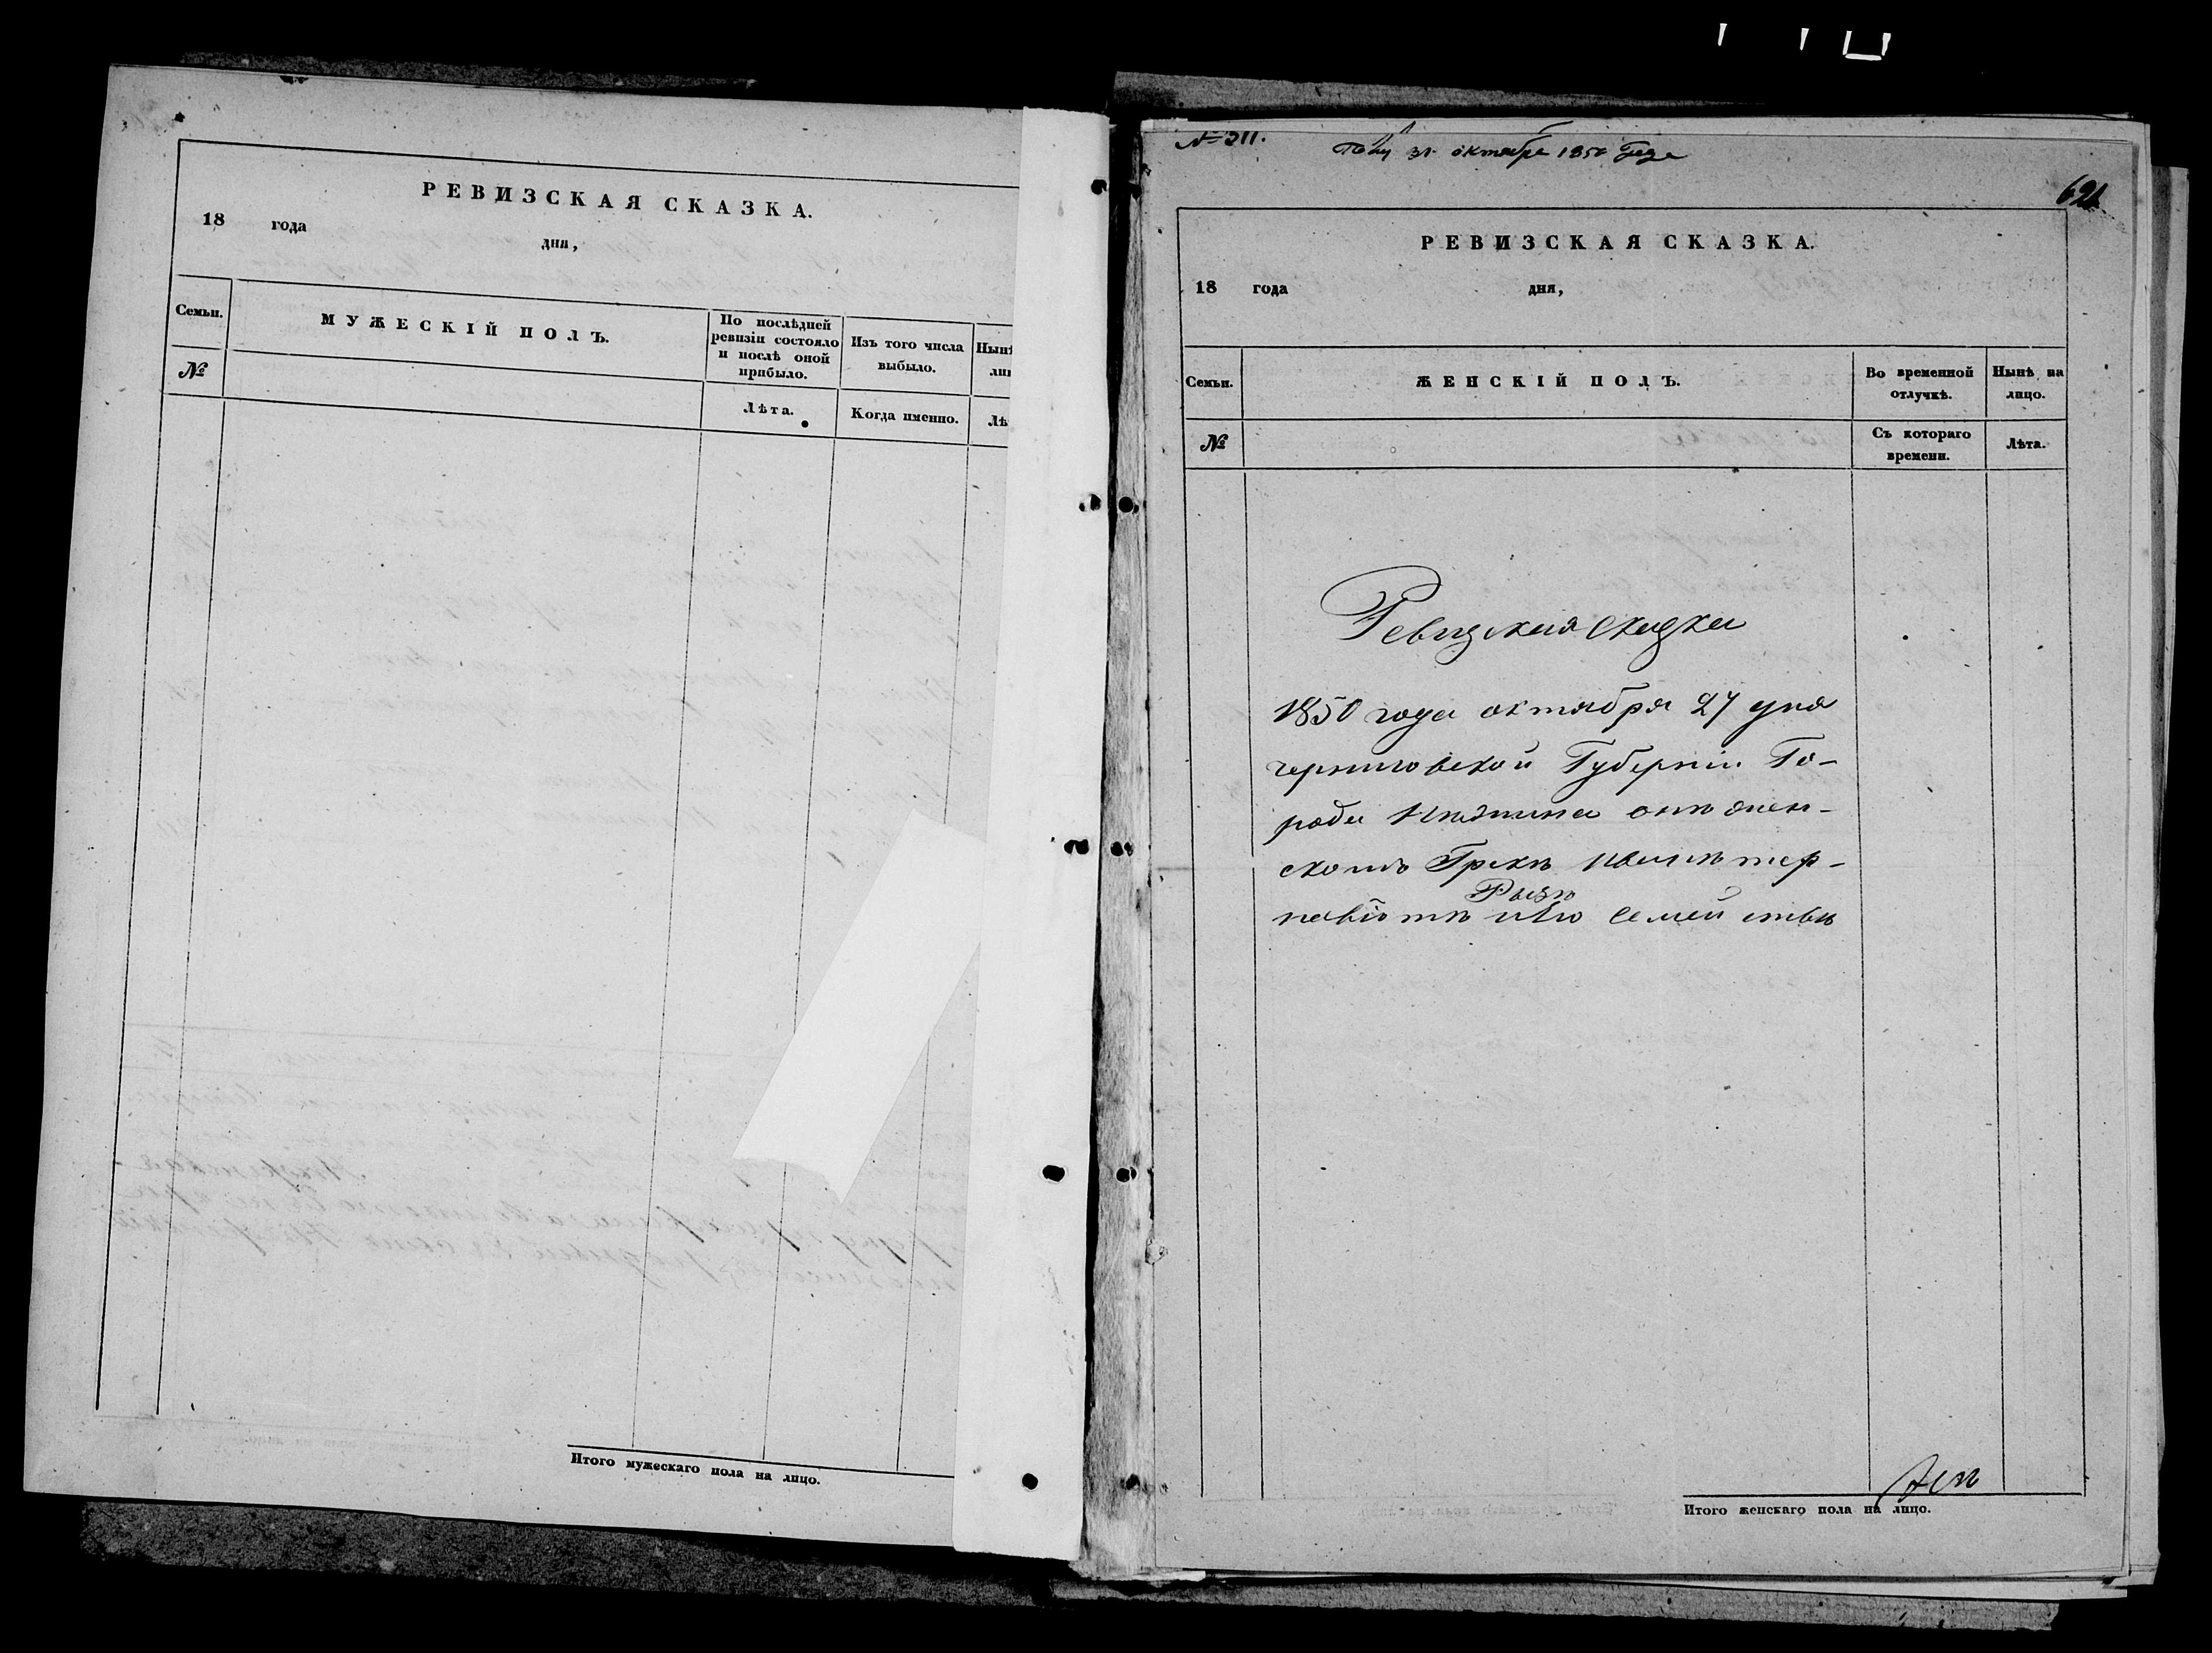 РЕВИЗСКАЯ СКАЗКА.
18 года дня,
Семьи.
МУЖЕСКІЙ ПОЛЪ.
По послѣдней ревизіи состояло и послѣ оной прибыло.
Изъ того числа выбыло.
№
Лѣта.
Когда именно.
Итого мужескаго пола на лицо.
№ 211.
31 октября 1850 года
РЕВИЗСКАЯ СКАЗКА.
18 года дня,
Семьи.
ЖЕНСКІЙ ПОЛЪ.
Во временной отлучкѣ.
Нынѣ на лицо.
№
Съ котораго времени.
Лѣта.
Ревизская сказка
1850 года октября 27 дня
черниговской Губерніи Го-
рода Нѣжина о нѣжен-
скомъ Грекѣ
семействѣ
Итого женскаго пола на лицо.